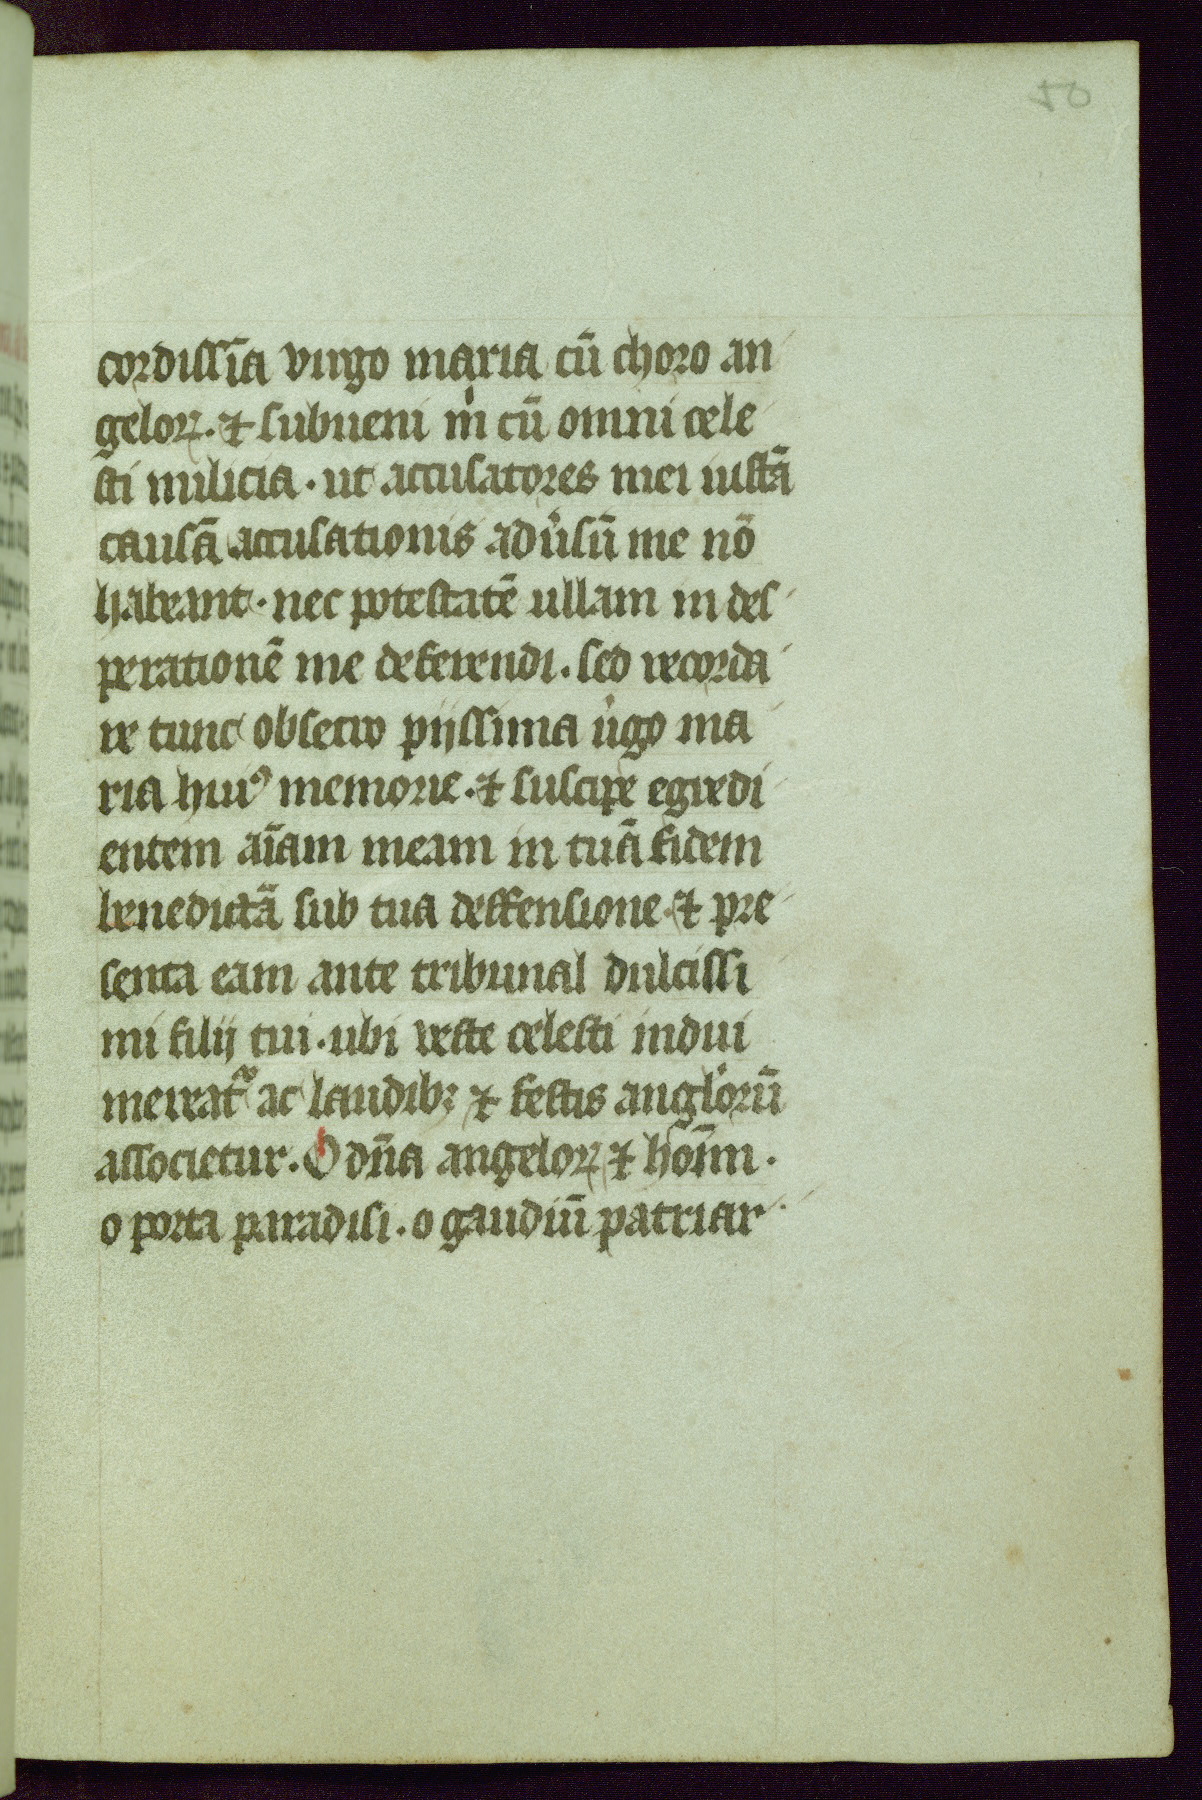 50
cordissīa virgo maria cū choro an
geloꝝ. ⁊ subueni m̍ cū omni cele
sti milicia. ut accusatores mei iustā
causā accusationis adu̍sū me nō
habeant. nec potestatē ullam in des
perationē me deferendi. sed recorda
re tunc obsecro pijssima u̍go ma
ria huiꝰ memorie. ⁊ suscipe egredi
entem aīam meam in tuā fidem
benedictā sub tua deffensione. ⁊ pre
senta eam ante tribunal dulcissi
mi filij tui. ubi veste celesti indui
mereatᷣ ac laudibꝫ ⁊ festis angl̍orū
associetur. O dn̄a angeloꝝ ⁊ hoīm.
o porta paradisi. o gaudiū patriar